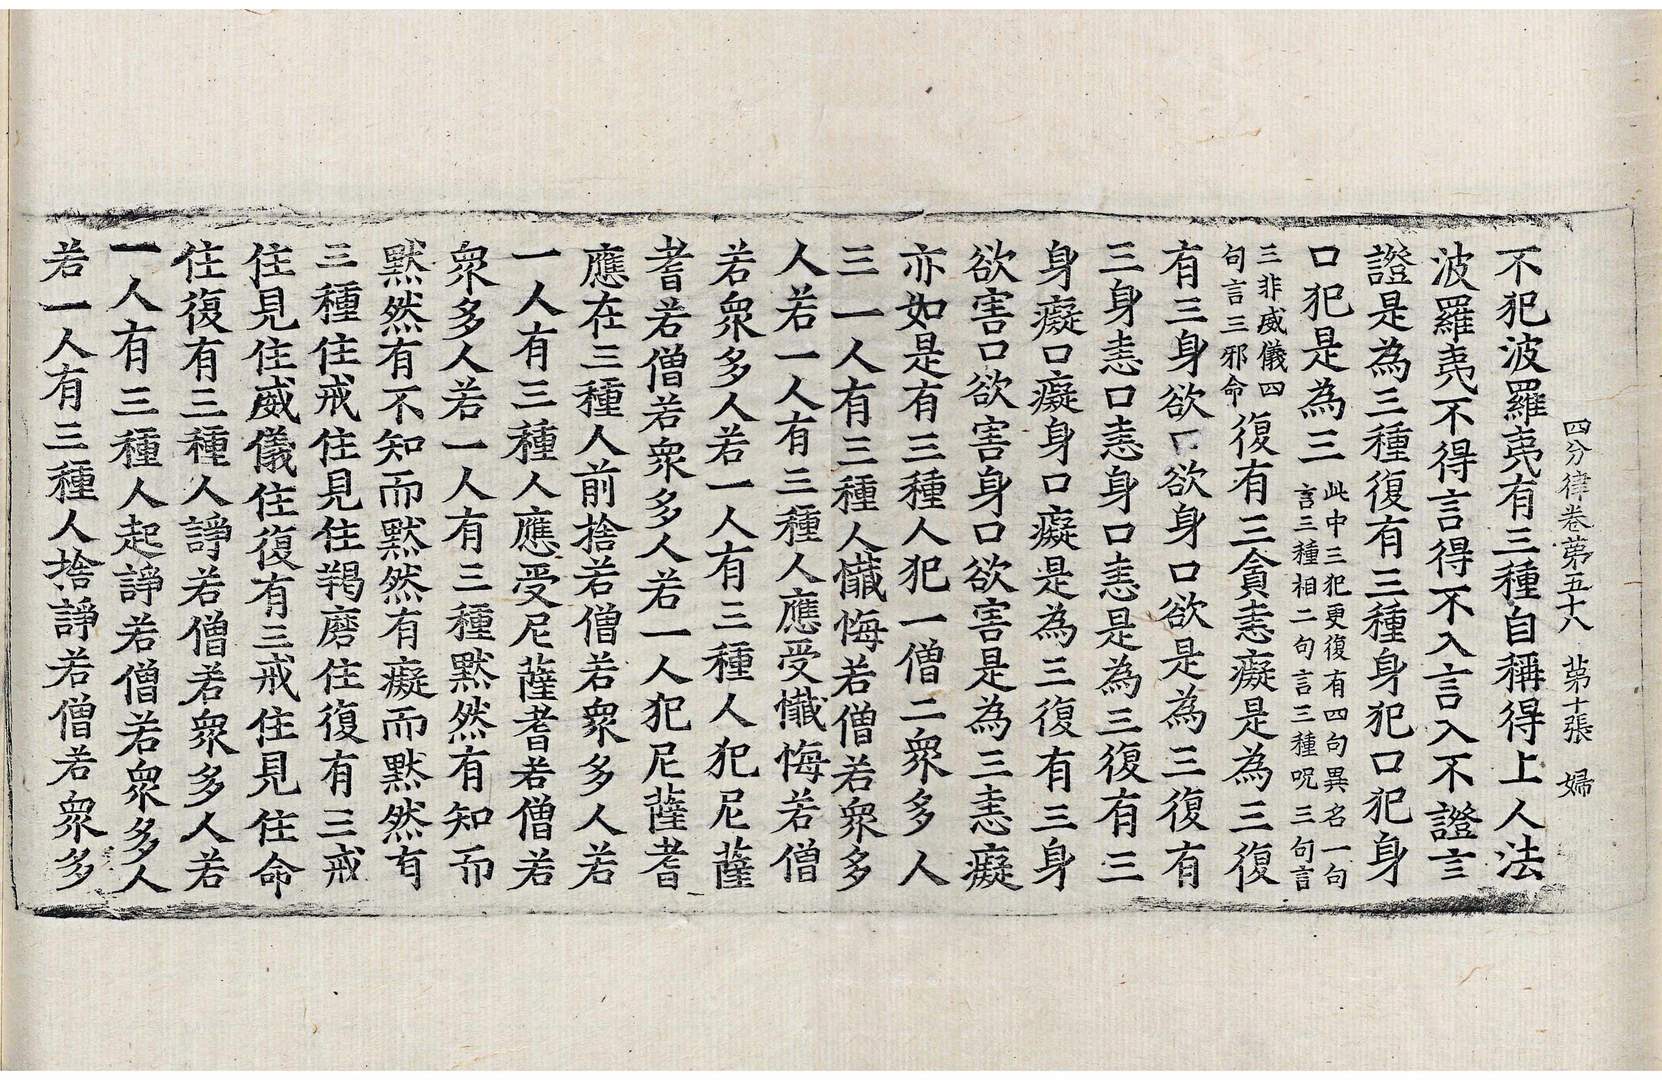 四分律卷第五十八　第十張　婦
不犯波羅夷有三種自稱得上人法
波羅夷不得言得不入言入不證言
證是為三種復有三種身犯口犯身
口犯是為三此中三犯更復有四句異名一句
言三種相二句言三種呪三句言
三非威儀四
句言三邪命復有三貪恚癡是為三復
有三身欲口欲身口欲是為三復有
三身恚口恚身口恚是為三復有三
身癡口癡身口癡是為三復有三身
欲害口欲害身口欲害是為三恚癡
亦如是有三種人犯一僧二衆多人
三一人有三種人懺悔若僧若衆多
人若一人有三種人應受懺悔若僧
若衆多人若一人有三種人犯尼薩
耆若僧若衆多人若一人犯尼薩耆
應在三種人前捨若僧若衆多人若
一人有三種人應受尼薩耆若僧若
衆多人若一人有三種默然有知而
默然有不知而默然有癡而默然有
三種住戒住見住羯磨住復有三戒
住見住威儀住復有三戒住見住命
住復有三種人諍若僧若衆多人若
一人有三種人起諍若僧若衆多人
若一人有三種人捨諍若僧若衆多